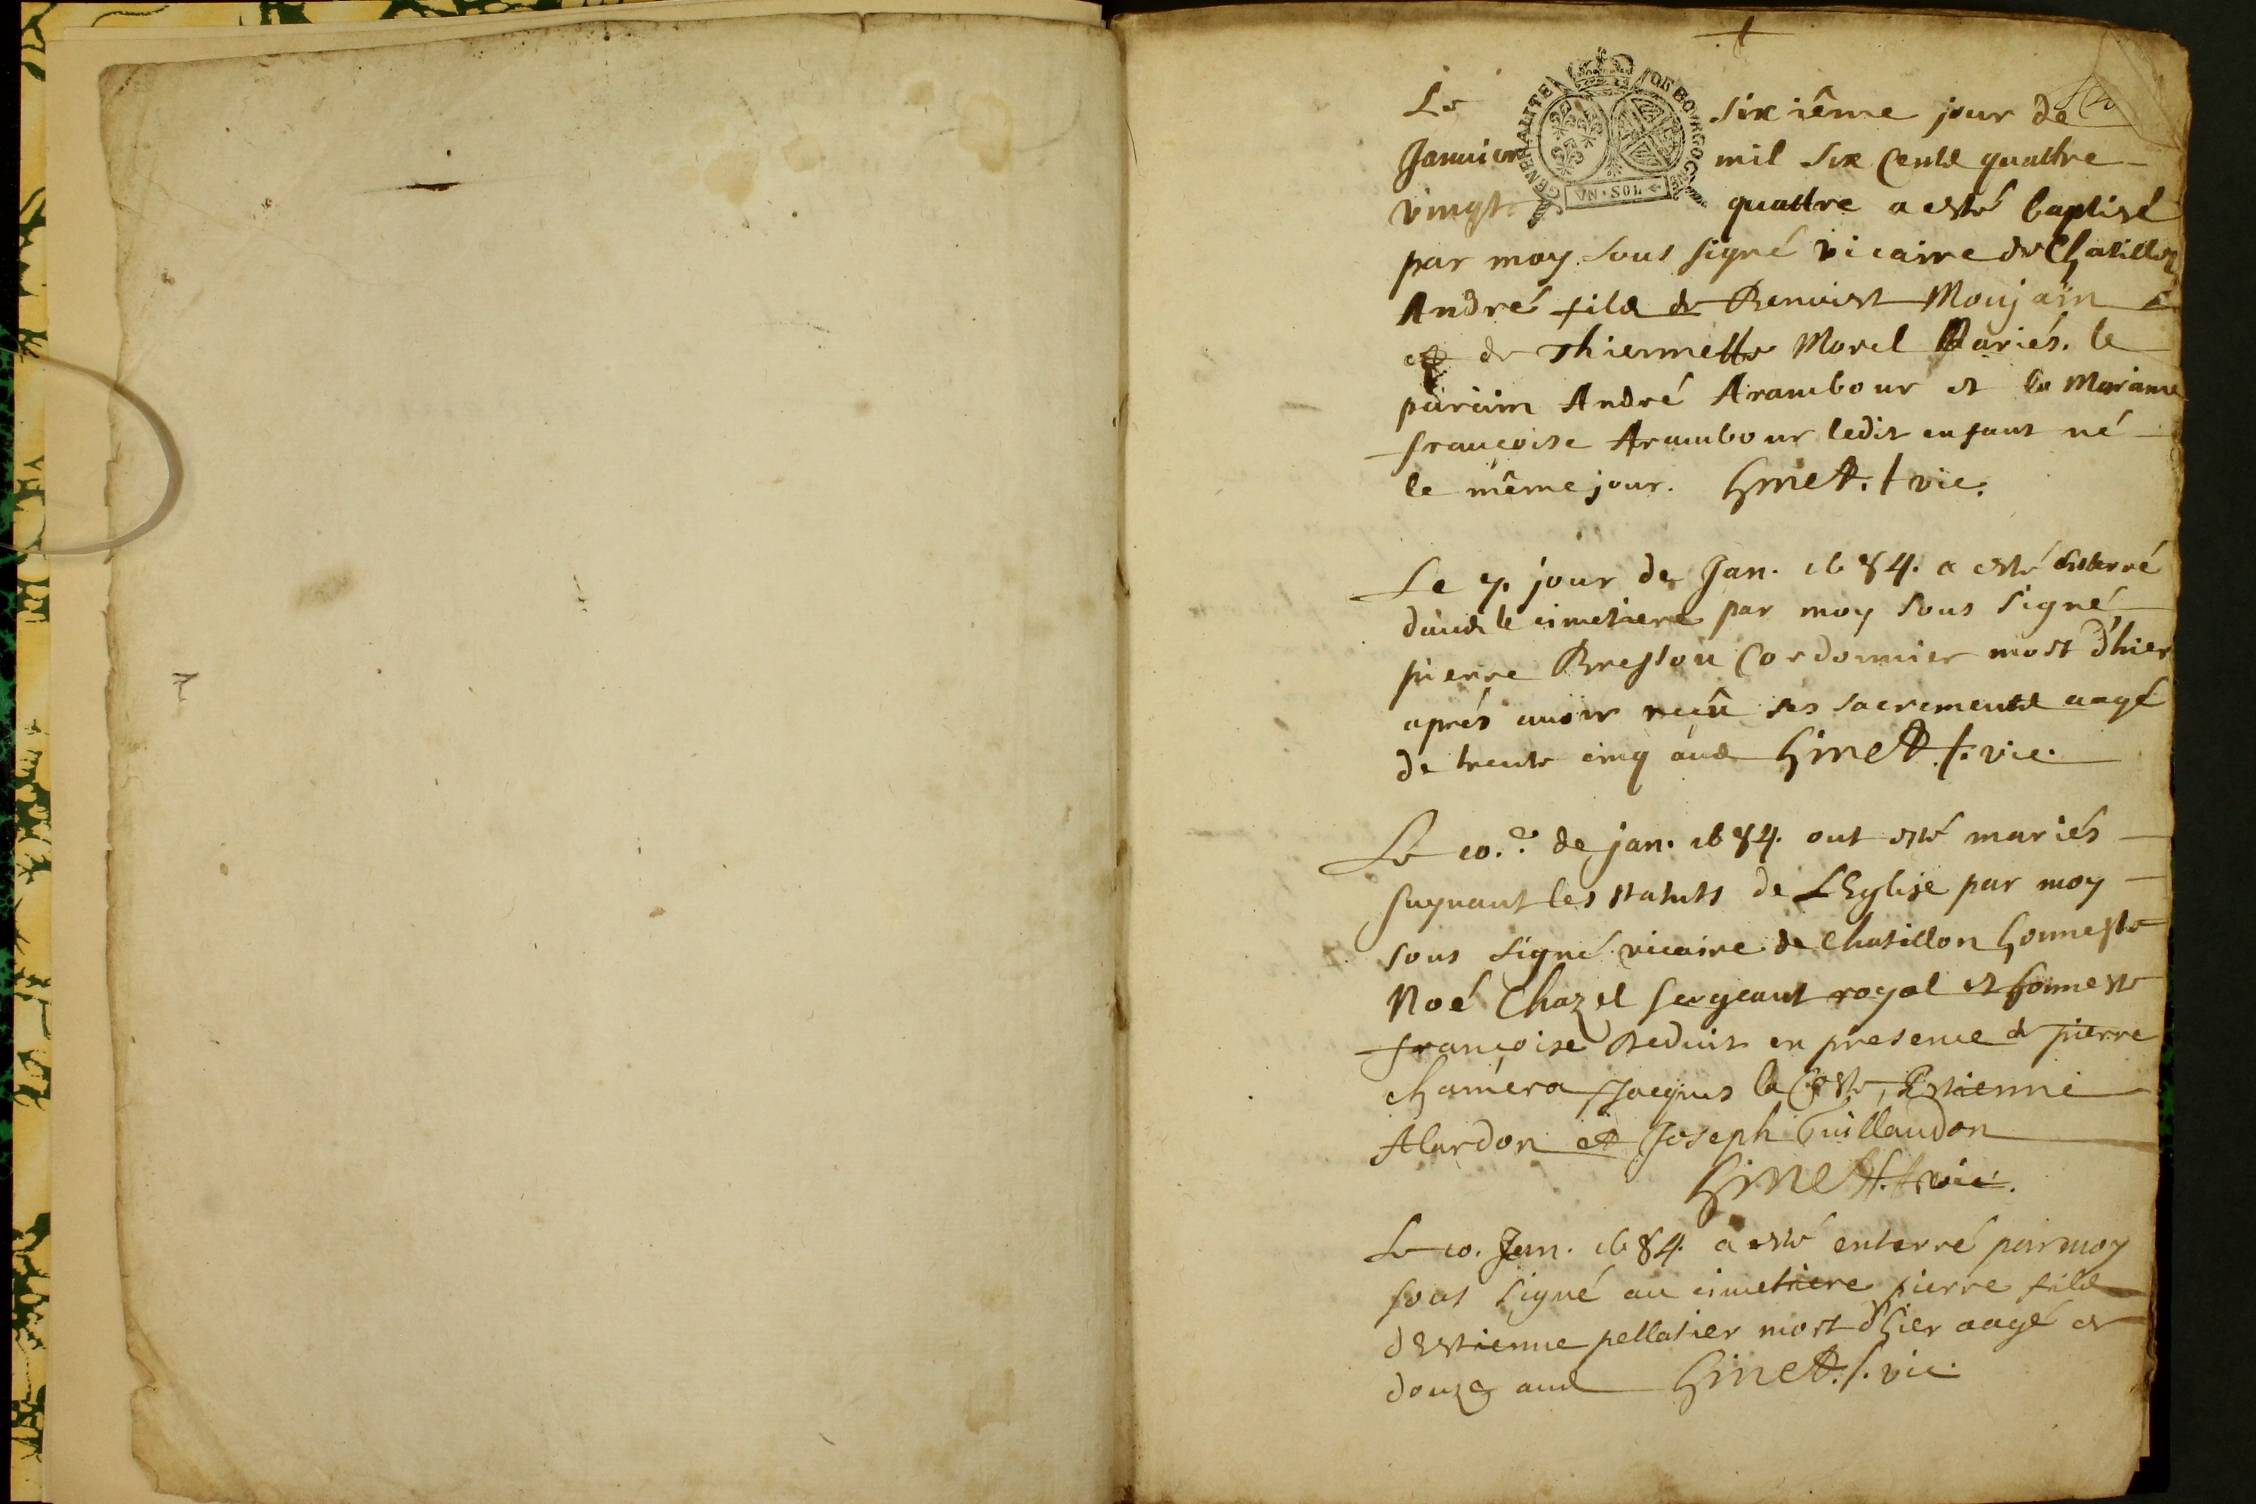 Le sixiême jour de
GENERALITE DE BOVRGOGNE
Januier mil six Cents quattre
VN · SOL
vingts quattre a esté baptisé
par moy sous signé vicaire de Chatillon
André fils de Benoist Moujain
et de Thiermette Morel Mariés. le
parain André Arambour et la Maraine
francoise Arambour ledit enfant né
le même jour. hinet. vic.
Le 7. jour de Jan. 1684. a esté enterré
dans le cimetiere par moy sous signé
pierre Bresson Cordonnier mort d'hier
aprés auoir reçû ses sacrements aagé
de trente cinq ans hinet. vic.
Le 10.e de jan. 1684. ont esté mariés
suyuant les statuts de LEglise par moy
sous signé vicaire de Chatillon honneste
Noé Chazel sergeant royal et honneste
francoise Beduit en presence de pierre
chamera Jacques la Coste, Estienne
Alardon et Joseph Guillaudon
hinet. vic.
Le 10. Jan. 1684. a esté enterré par moy
sous signé au cimetiere pierre fils
d'Estienne pellatier mort d'hier aagé de
douze ans hinet. vic.